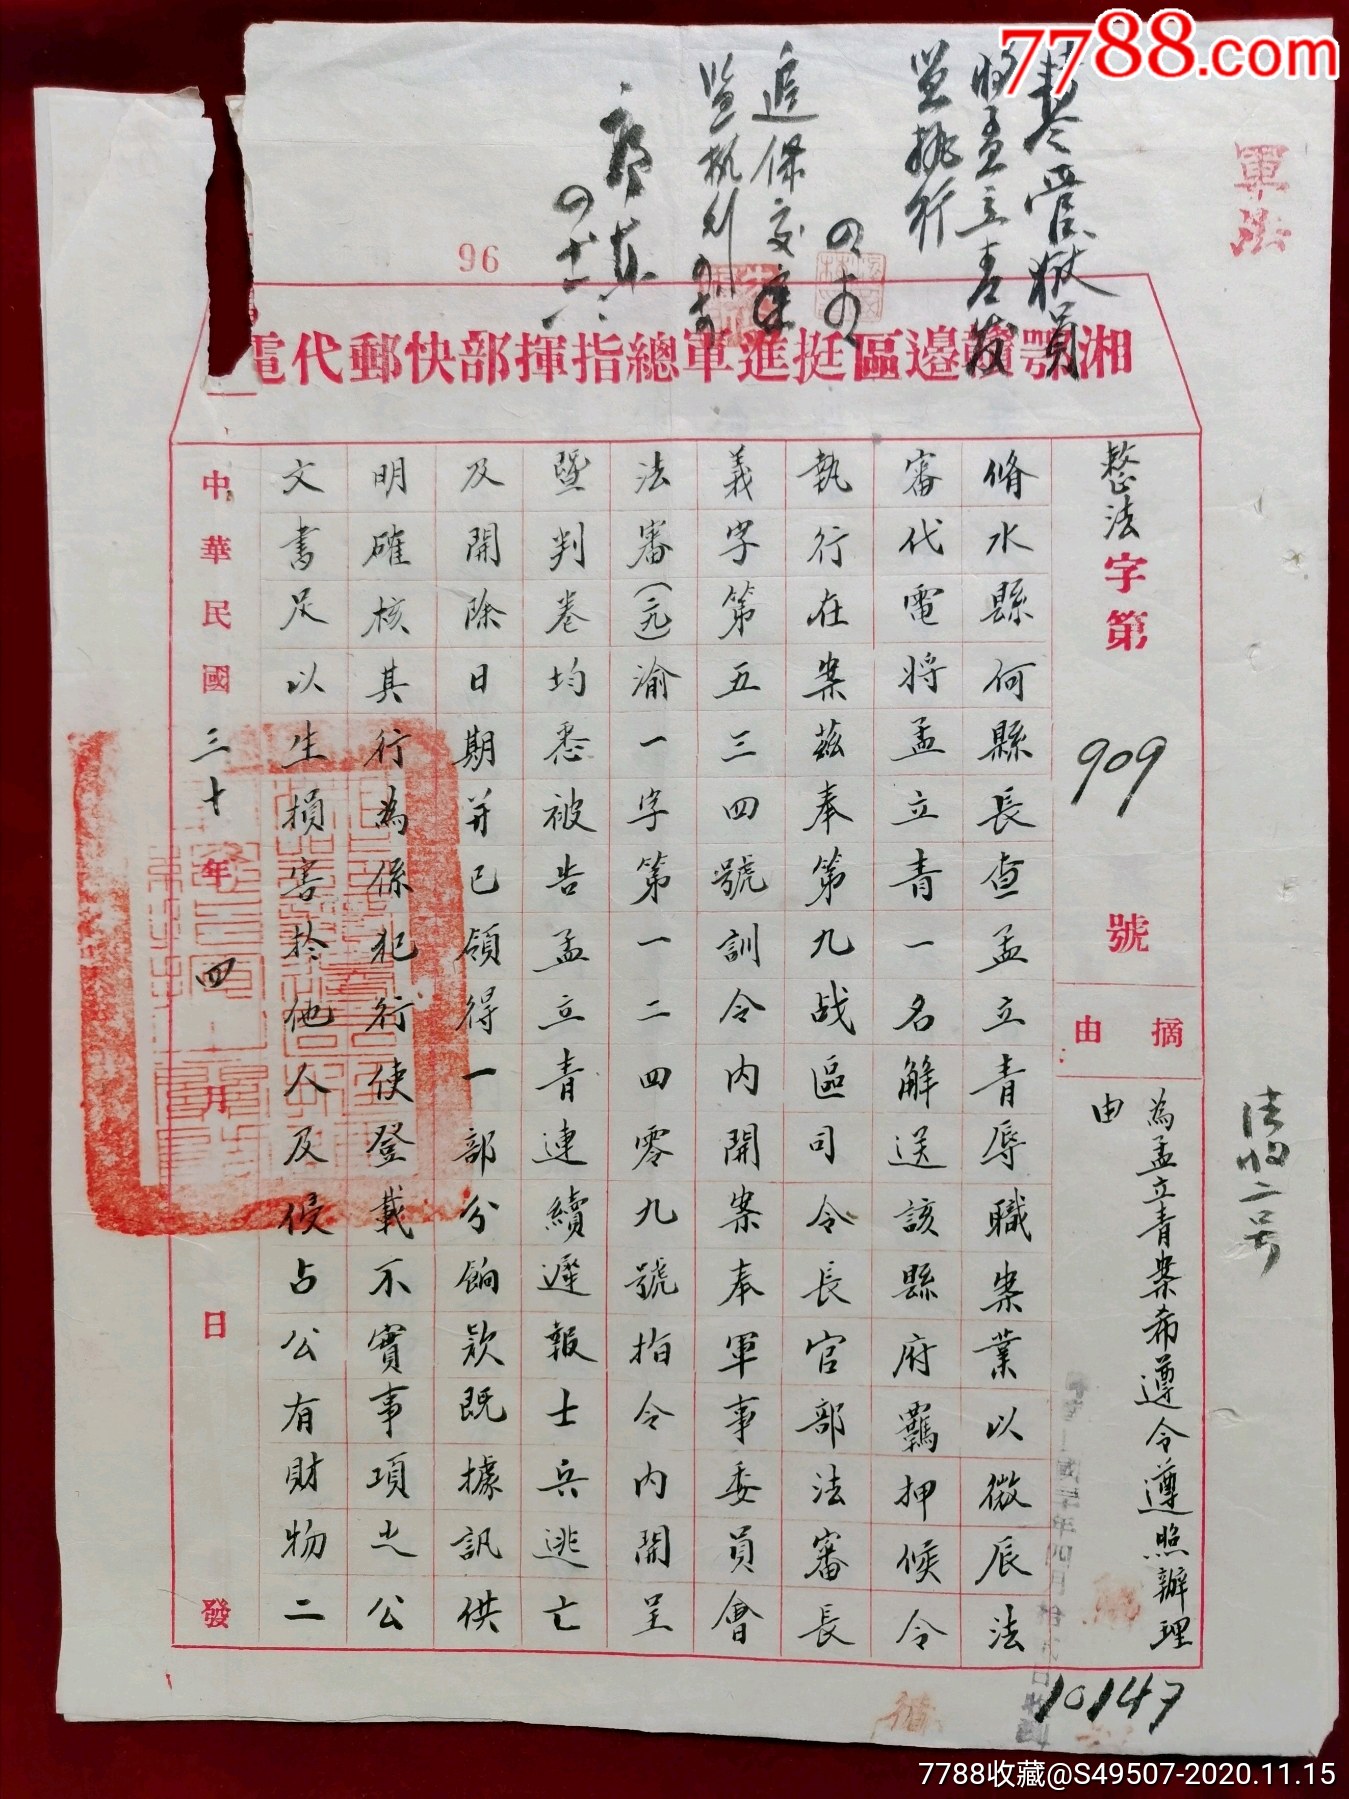 7788.com
軍法
96
湘鄂贛邊區挺進軍總指揮部快郵代電
整法字第909號
摘由
為孟立青案希遵令遵照辦理
由
脩水縣何縣長查孟立青辱職案業以微辰法
審代電將孟立青一名解送該縣府羈押候令
執行在案茲奉第九战區司令長官部法審長
義字第五三四號訓令內開案奉軍事委員會
法審(元)渝一字第一二四零九號指令內開呈
暨判卷均悉被告孟立青連續遲報士兵逃亡
及開除日期并已領得一部分餉款既據訊供
明確核其行為係犯行使登載不實事項之公
文書足以生損害於他人及侵占公有財物二
中華民國三十年四月 日發
法 二号
10147
7788收藏@S49507-2020.11.15